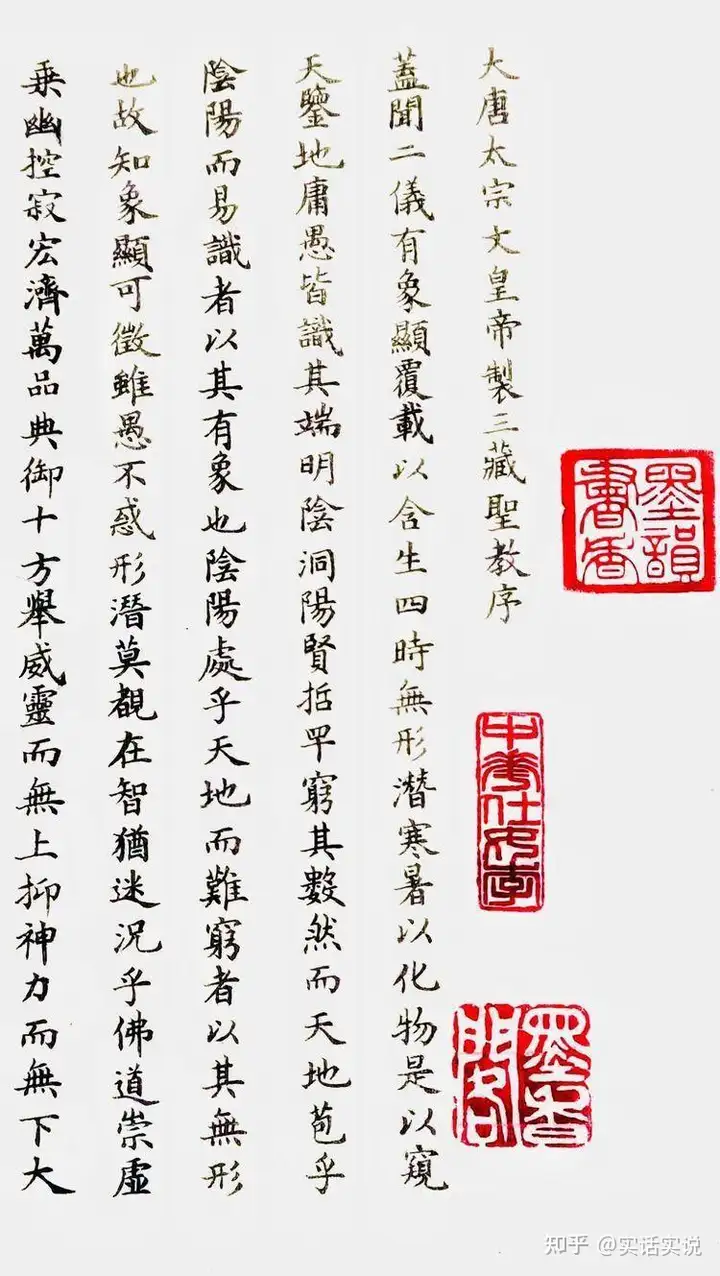 大唐太宗文皇帝製三藏聖教序
蓋聞二儀有象顯覆載以含生四時無形潛寒暑以化物是以窺
天鑒地庸愚皆識其端明陰洞陽賢哲罕窮其數然而天地苞乎
陰陽而易識者以其有象也陰陽處乎天地而難窮者以其無形
也故知象顯可徵雖愚不惑形潛莫覩在智猶迷況乎佛道崇虛
乗幽控寂宏濟萬品典御十方舉威靈而無上抑神力而無下大
墨韻書香
墨香閣
知乎 @实话实说